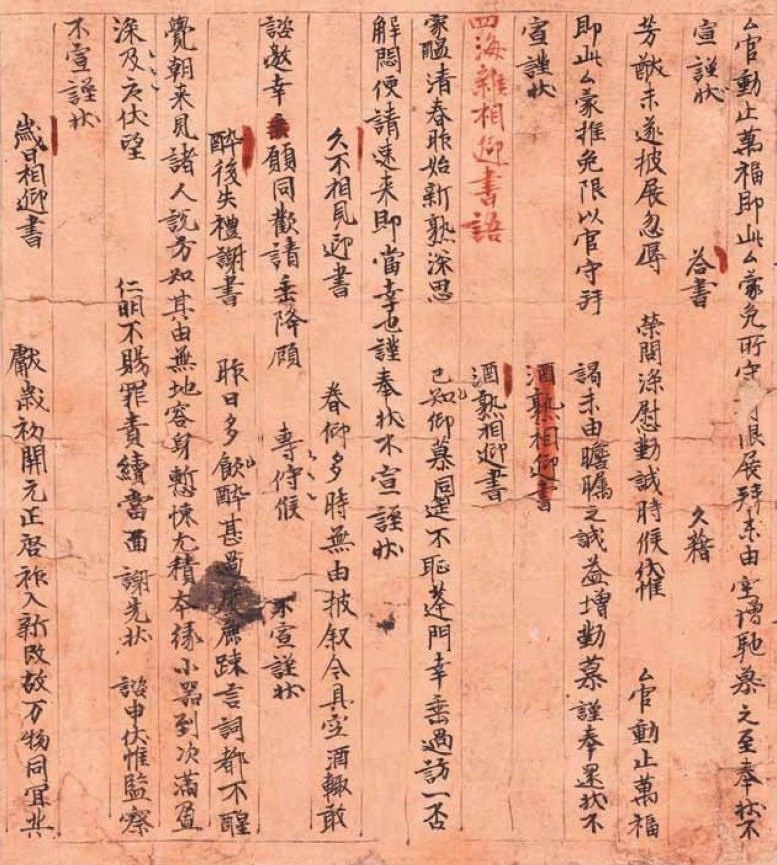 厶官動止萬福即此厶蒙免所守限展拜未由空增馳慕之至奉狀不
宣謹狀 荅書 久藉
芳猷未遂披展忽辱 榮問深慰勤誠時候伏惟 厶官動止萬福
即此厶蒙推免限以官守拜 謁未由瞻矚之誠益增勤慕謹奉還狀不
宣謹狀 酒熟相迎書
四海雜相迎書語 酒熟相迎書
家醞清春昨始新熟深思 已知仰慕同邀不恥蓬門幸垂過訪一否
解悶便請速来即當幸也謹奉狀不宣謹狀
久不相見迎書 眷仰多時無由披叙今具空酒輒敢
諮邀幸願同歡請垂降顧 專侍候 不宣謹狀
醉後失禮謝書 昨日多飲醉甚過度麁踈言詞都不醒
覺朝来見諸人説方知其由無地容身慙悚尤積本緣小器到次滿盈
深及伏望 仁明不賜罪責續當面 謝先狀 諮申伏惟監察
不宣謹狀
歲日相迎書 獻歲初開元正啓祚入新改故万物同宜共